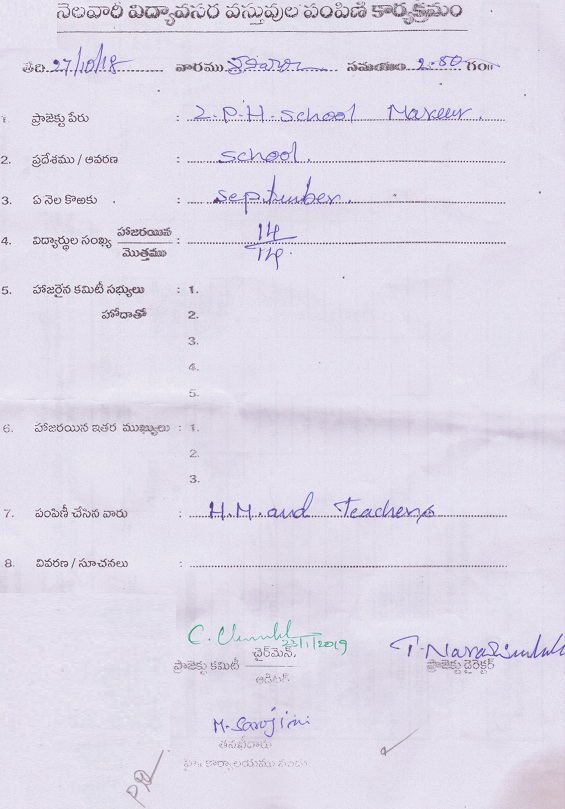 నెలవారీ విద్యావసర వస్తువుల పంపిణీ కార్యక్రమం
తేది 27/10/18 వారము సమయం 2.50 గం॥
1. ప్రాజెక్టు పేరు : Z.P.H. school
2. ప్రదేశము / ఆవరణ : school.
3. ఏ నెల కొఱకు : September.
4. విద్యార్థుల సంఖ్య హాజరయిన / మొత్తము : 14 / 14.
5. హాజరైన కమిటీ సభ్యులు : 1.
హోదాతో 2.
3.
4.
5.
6. హాజరయిన ఇతర ముఖ్యులు : 1.
2.
3.
7. పంపిణీ చేసిన వారు : H.M. and Teachers
8. వివరణ / సూచనలు :
C. 23/1/2019
ఛైర్‌మెన్
ప్రాజెక్టు కమిటీ
ఆడిటర్
ప్రాజెక్టు డైరెక్టర్
M. Sarojini